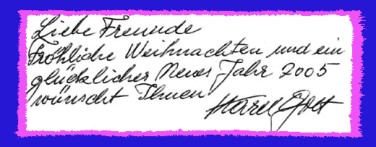 Liebe Freunde
Fröhliche Weihnachten und ein
glückliches Neues Jahr 2005
wünscht Ihnen
Karel Gott